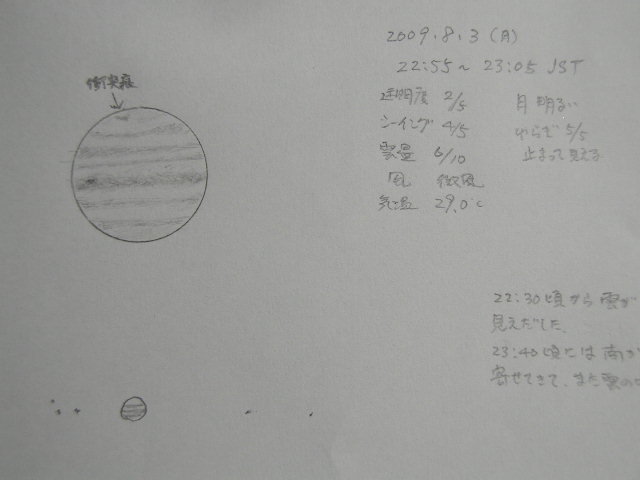 2009.8.3（月）
22:55～23:05 JST
衝突痕
透明度 2/5 月 明るい
シーイング 4/5 ゆらぎ 5/5
雲量 6/10 止まって見える
風 微風
気温 29.0℃
22:30頃から雲が
見えだした。
23:40頃には南か
寄せてきて、また雲の